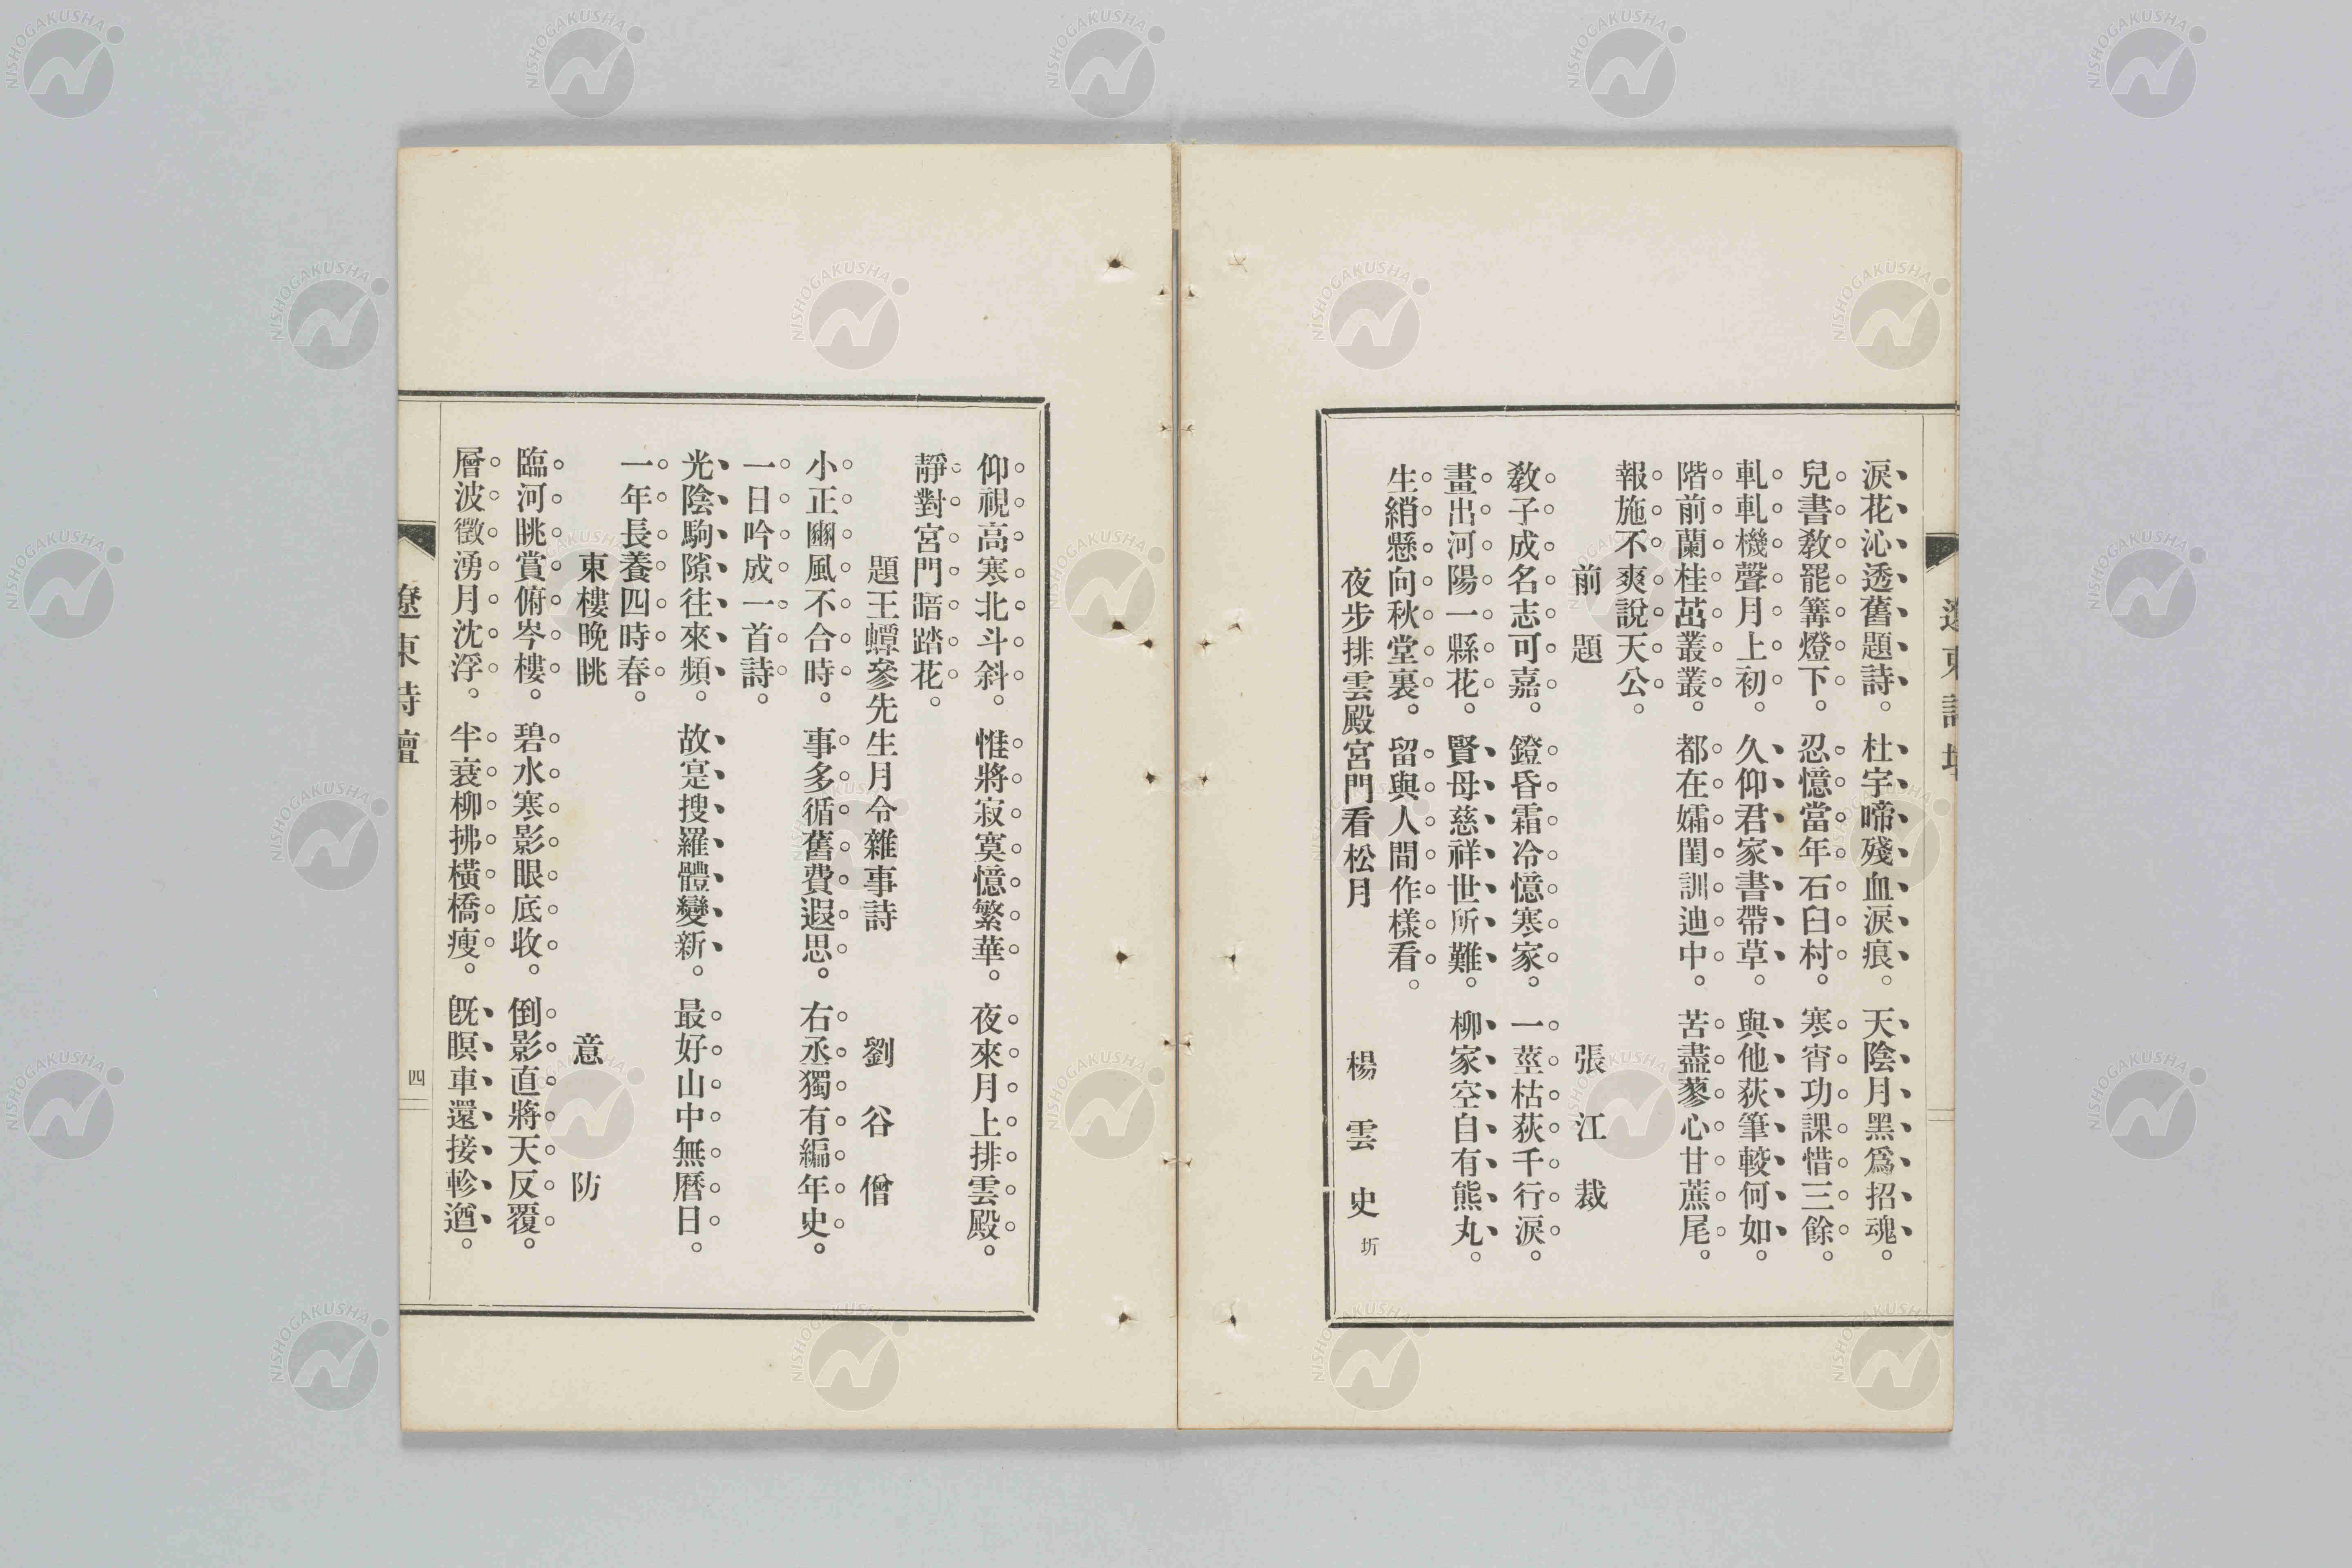 淚花沁透舊題詩。杜宇啼殘血淚痕。天陰月黑爲招魂。
兒書教罷篝燈下。忍憶當年石臼村。寒宵功課惜三餘。
軋軋機聲月上初。久仰君家書帶草。與他荻筆較何如。
階前蘭桂茁叢叢。都在孀閨訓迪中。苦盡蓼心甘蔗尾。
報施不爽說天公。
前題　張江裁
教子成名志可嘉。鐙昏霜冷憶寒家。一莖枯荻千行淚。
畫出河陽一縣花。賢母慈祥世所難。柳家空自有熊丸。
生綃懸向秋堂裏。留與人間作樣看。
夜步排雲殿宮門看松月　楊雲史 圻
遼東詩壇
仰視高寒北斗斜。惟將寂寞憶繁華。夜來月上排雲殿。
靜對宮門暗踏花。
題王蟫參先生月令雜事詩　劉谷僧
小正豳風不合時。事多循舊費遐思。右丞獨有編年史。
一日吟成一首詩。
光陰駒隙往來頻。故寔搜羅體變新。最好山中無曆日。
一年長養四時春。
東樓晚眺　意防
臨河眺賞俯岑樓。碧水寒影眼底收。倒影直將天反覆。
層波徵湧月沈浮。半衰柳拂橫橋瘦。旣瞑車還接軫遒。
遼東詩壇
四
NISHOGAKUSHA